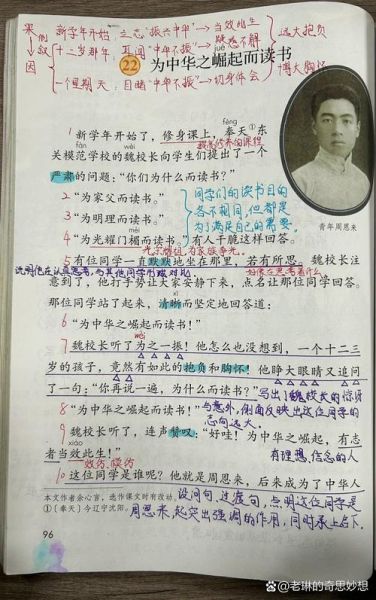 果 倒叙 因
新学年开始 立志"振兴中华"→当效此生
十二岁那年 耳闻"中华不振"→疑惑不解
一个星期天 目睹"中华不振"→切身体会
远大抱负
博大胸怀
jué
22 为中华之崛起而读书
fèng
1 新学年开始了，修身课上，奉天①东
fàn wèi
关模范学校的魏校长向学生们提出了一个
严肃的问题："你们为什么而读书？"
2 "为家父而读书。"
3 "为明理而读书。"
méi
4 "为光耀门楣而读书。"有人干脆这样回答。
同学们的读书目的
各不相同，但都是
为了满足自己的需要。
青年周恩来
5 有位同学一直默默地坐在那里，若有所思。魏校长注
说明他在认真思考，与其他同学形成对比
好像在思考着什么
意到了，他打手势让大家安静下来，点名让那位同学回答。
xī
那位同学站了起来，清晰而坚定地回答道：
6 "为中华之崛起而读书！"
7 魏校长听了为之一振！他怎么也没想到，一个十二三
岁的孩子，竟然有如此的抱负和胸怀！他睁大眼睛又追问
了一句："你再说一遍，为什么而读书？"
写出了魏校长的惊讶
与意外，侧面反映出这位同学的
志向远大。
8 "为中华之崛起而读书！"
9 魏校长听了，连声赞叹："好哇！为中华之崛起，有志
xiào
者当效此生！"
效仿、模仿
有理想、信念的人
10 这位同学是谁呢？他就是周恩来，后来成为了中华人
设问句，过渡句，点明这位同学是
周恩来，起突出强调的作用，同时承上启下。
本文作者余心言，选作课文时有改动。
①〔奉天〕今辽宁沈阳。
96
@老琳的奇思妙想